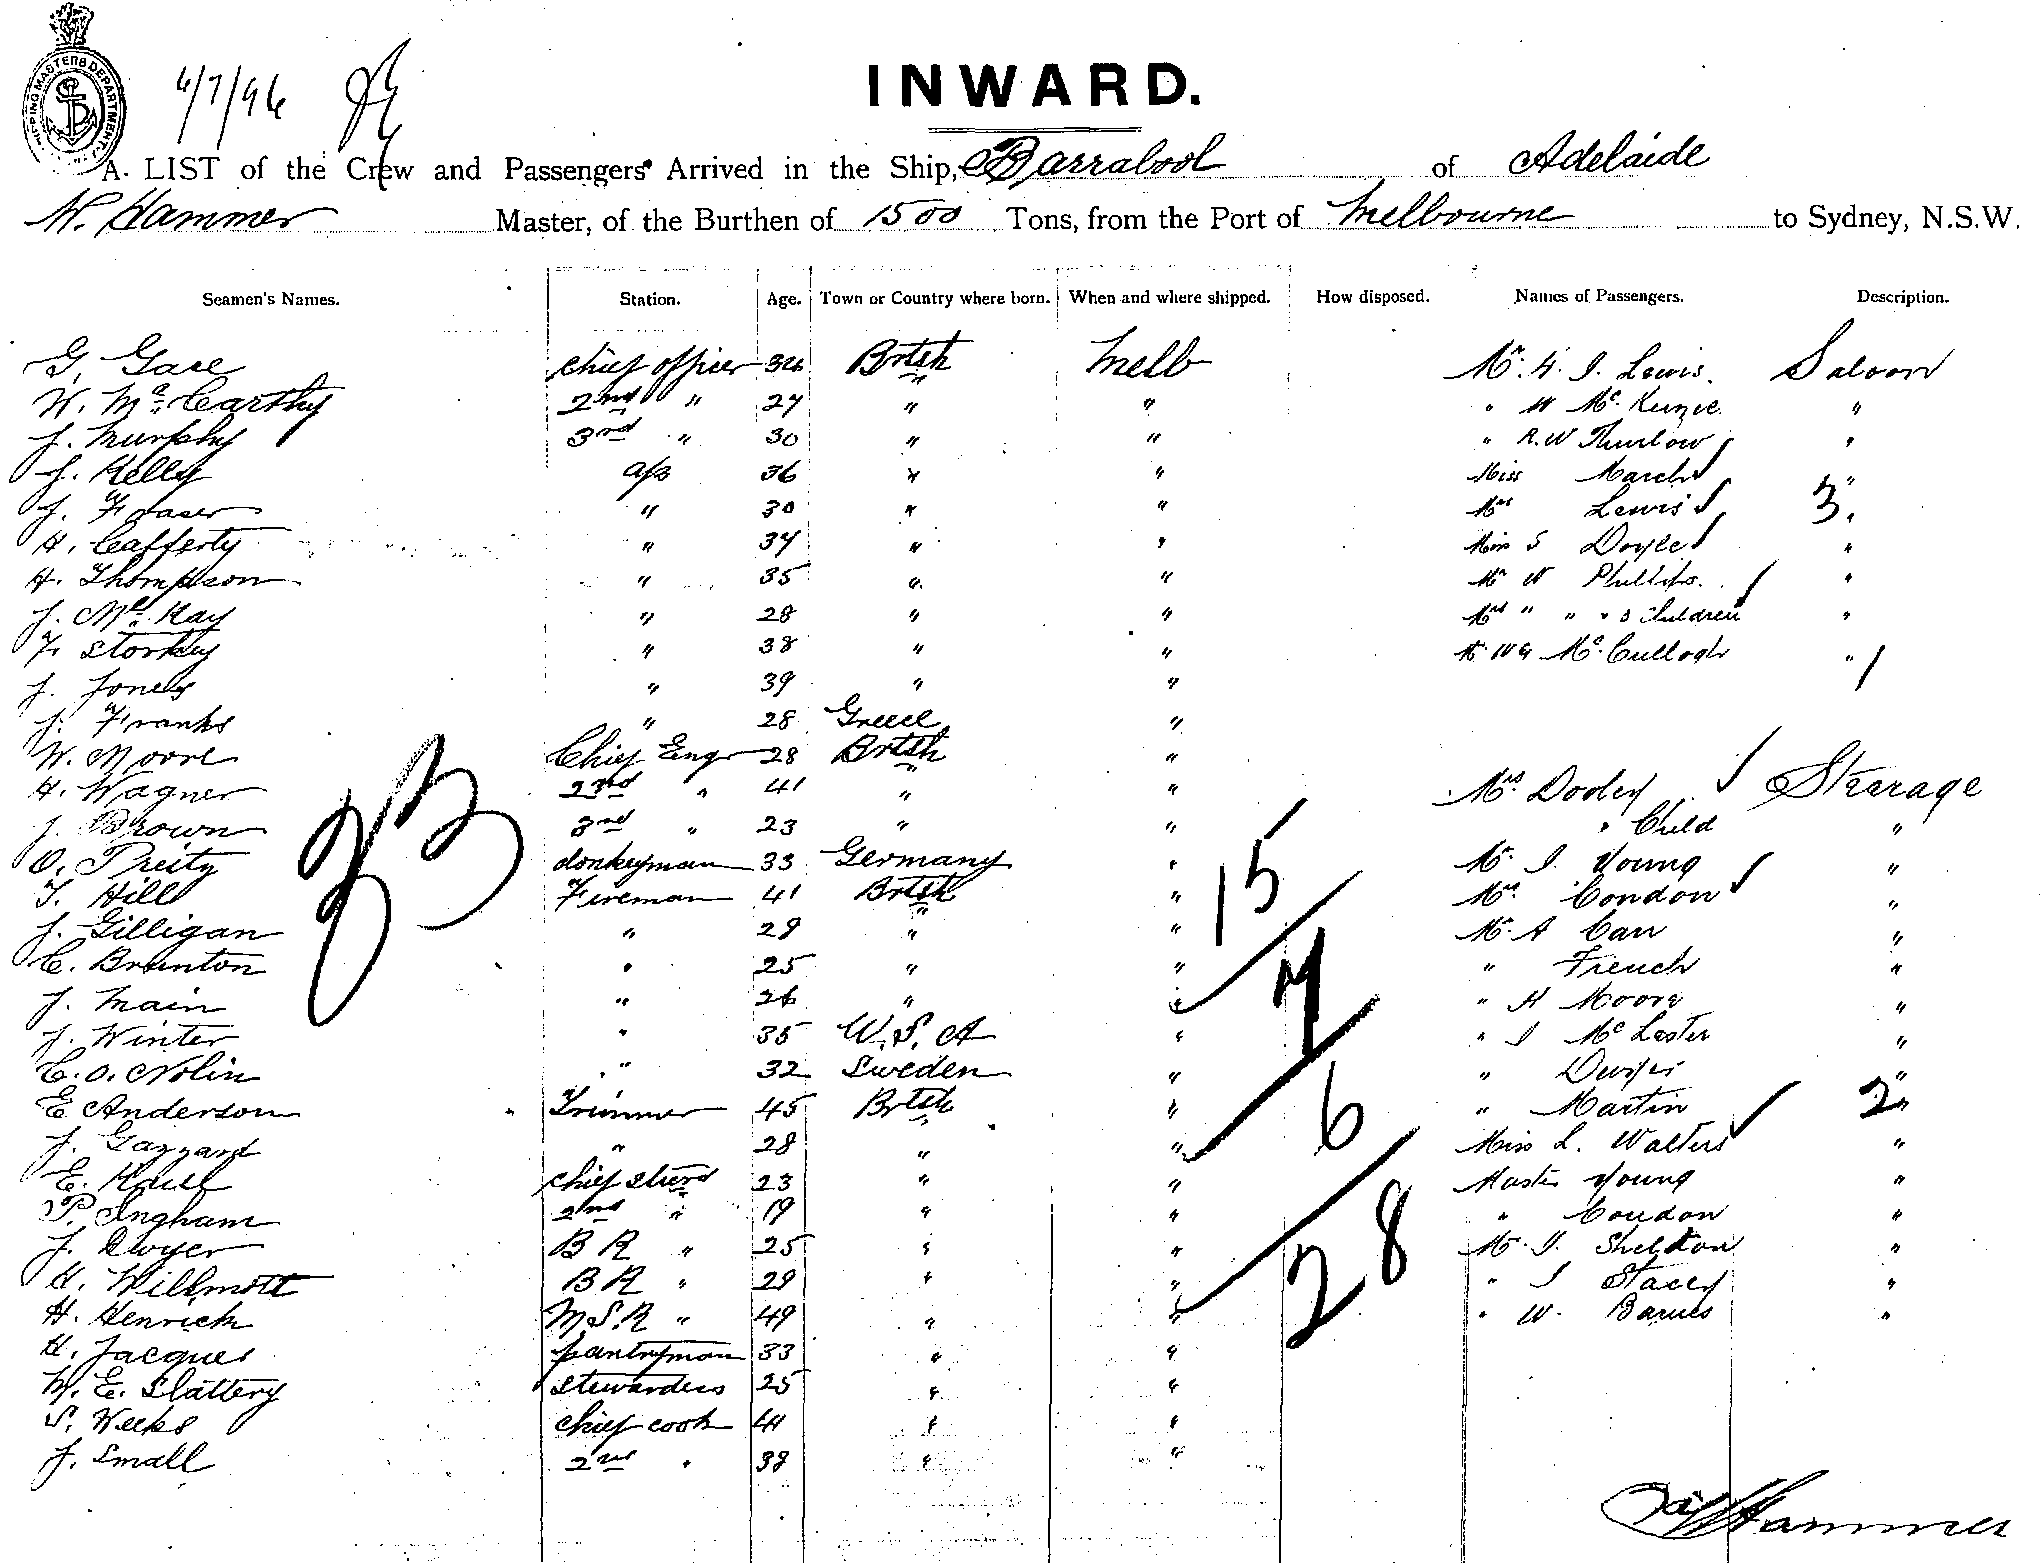 SHIPPING MASTERS DEPARTMENT
6/7/96
INWARD.
A LIST of the Crew and Passengers Arrived in the Ship, Barrabool of Adelaide
W. Hammer Master, of the Burthen of 1500 Tons, from the Port of Melbourne to Sydney, N.S.W.
Seamen's Names. Station. Age. Town or Country where born. When and where shipped. How disposed. Names of Passengers. Description.
G. Gase chief officer 34 Brtsh Melb Mr. H. J. Lewis. Saloon
W. Mc. Carthy 2nd " 27 " " " W Mc. Kenzie "
J. Murphy 3rd " 30 " " " R. W Thurlow "
J. Kelly a/b 36 " " Miss March "
J. Fraser " 30 " " Mrs Lewis 3.
H. Cafferty " 37 " " Miss S Doyle "
H. Thompson " 35 " " Mr W Phillips. "
J. Mc. Kay " 28 " " Mrs " " " 3 Children "
F. Storkey " 38 " " Mr W G Mc. Cullogh "
J. Jones " 39 " "
J. Franks " 28 Greece "
W. Moore Chief Engr 28 Brtsh "
H. Wagner 2nd " 41 " " Mrs Dooley Steerage
J. Brown 3rd " 23 " " " Child "
O. Preity donkeyman 33 Germany " Mr. J. Young "
T. Hill Fireman 41 Brtsh " Mrs. Condon "
J. Gilligan " 29 " " Mr. A Carr "
C. Brunton " 25 " " " French "
J. Main " 26 " " " H Moore "
J. Winter " 35 U.S.A " " J Mc Lester "
C. O. Nolin " 32 Sweden " " Dwyer "
E Anderson Trimmer 45 Brtsh " " Martin 2 "
J. Gazzard " 28 " " Miss L. Walters "
E. Knell chief stwrd 23 " " Master Young "
P. Ingham 2nd " 19 " " " Condon "
J. Dwyer B R " 25 " " Mr. J. Sheldon "
H. Willmott B R " 29 " " " J Stacey "
H. Henrick M.S.R " 49 " " " W. Barnes "
H. Jacques pantryman 33 " "
M. E. Slattery stewardess 25 " "
S. Weeks chief cook 41 " "
J. Small 2nd " 38 " "
33
15
7
6
28
W Hammer